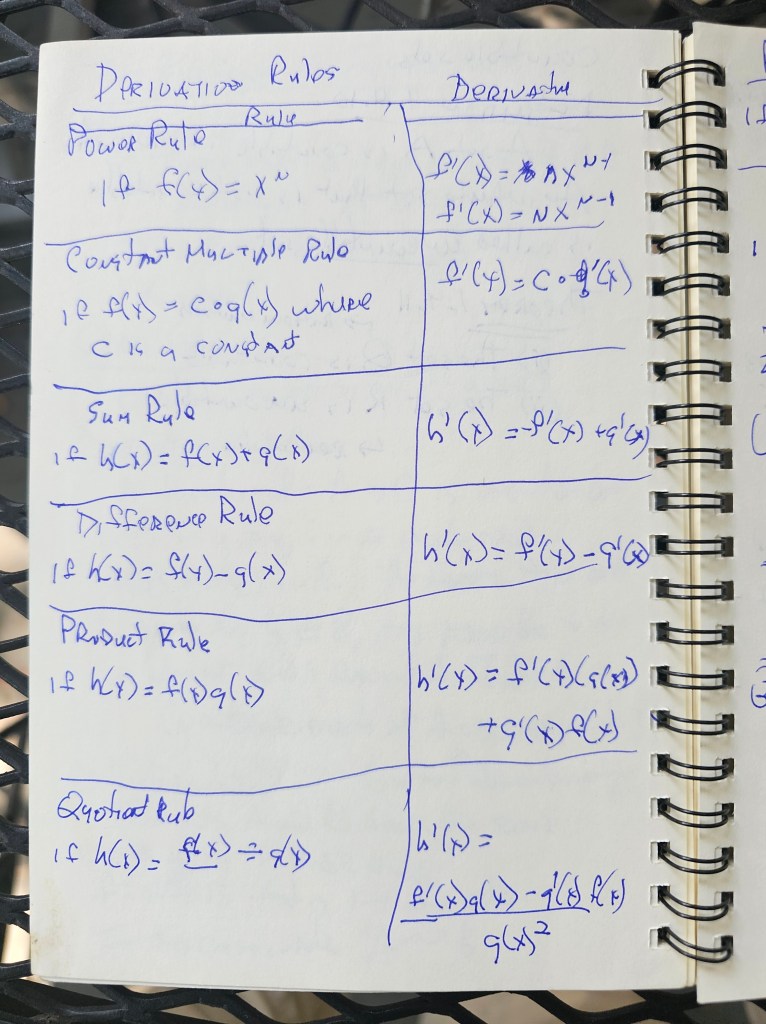 Derivative Rules
Rule
Derivative
Power Rule
If f(x) = x^n
f'(x) = n x^n-1
f'(x) = n x^n-1
Constant Multiple Rule
if f(x) = c∘g(x) where
c is a constant
f'(x) = c∘g'(x)
Sum Rule
if h(x) = f(x)+g(x)
h'(x) = f'(x) + g'(x)
Difference Rule
if h(x) = f(x) - g(x)
h'(x) = f'(x) - g'(x)
Product Rule
if h(x) = f(x)g(x)
h'(x) = f'(x)(g(x))
+g'(x)f(x)
Quotient Rule
if h(x) = f(x) ÷ g(x)
h'(x) =
f'(x)g(x) - g'(x)f(x)
g(x)²